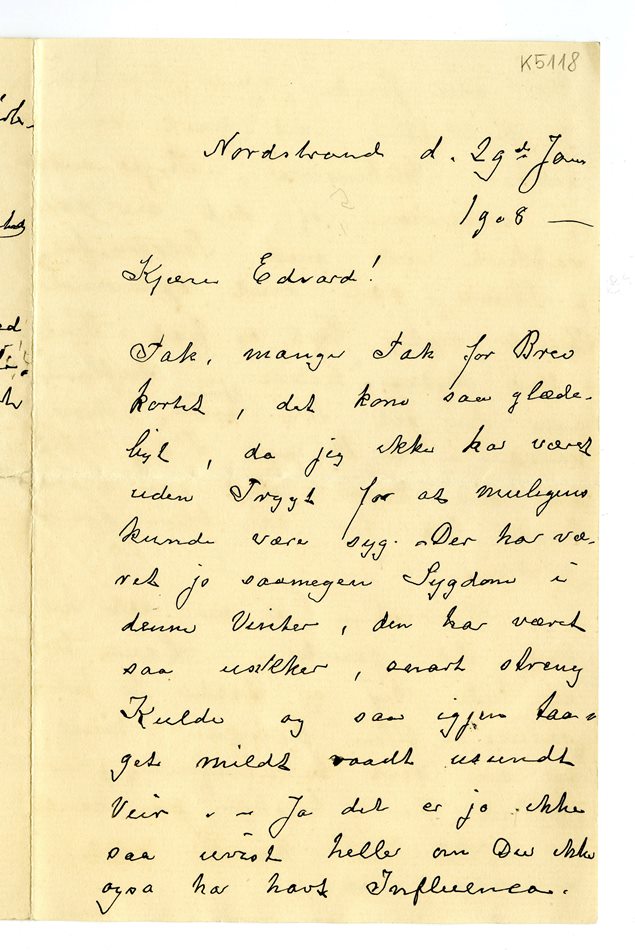 K5118
Nordstrand d. 29de Jan
1908 —
Kjære Edvard!
Tak, mange Tak for Brev
kortet, det kom saa glæde-
ligt, da jeg ikke har været
uden Frygt for at muligens
kunde være syg. – Der har væ-
ret jo saamegen Sygdom i
denne Vinter, den har været
saa usikker, snart streng
Kulde og saa igjen taa-
get mildt raadt usundt
Veir. – – Ja det er jo ikke
saa uvist heller om Du ikke
ogsa har havt Influenca.